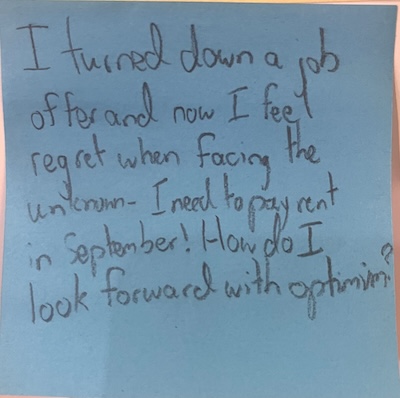 I turned down a job
offer and now I feel
regret when facing the
unknown- I need to pay rent
in September! How do I
look forward with optimism?